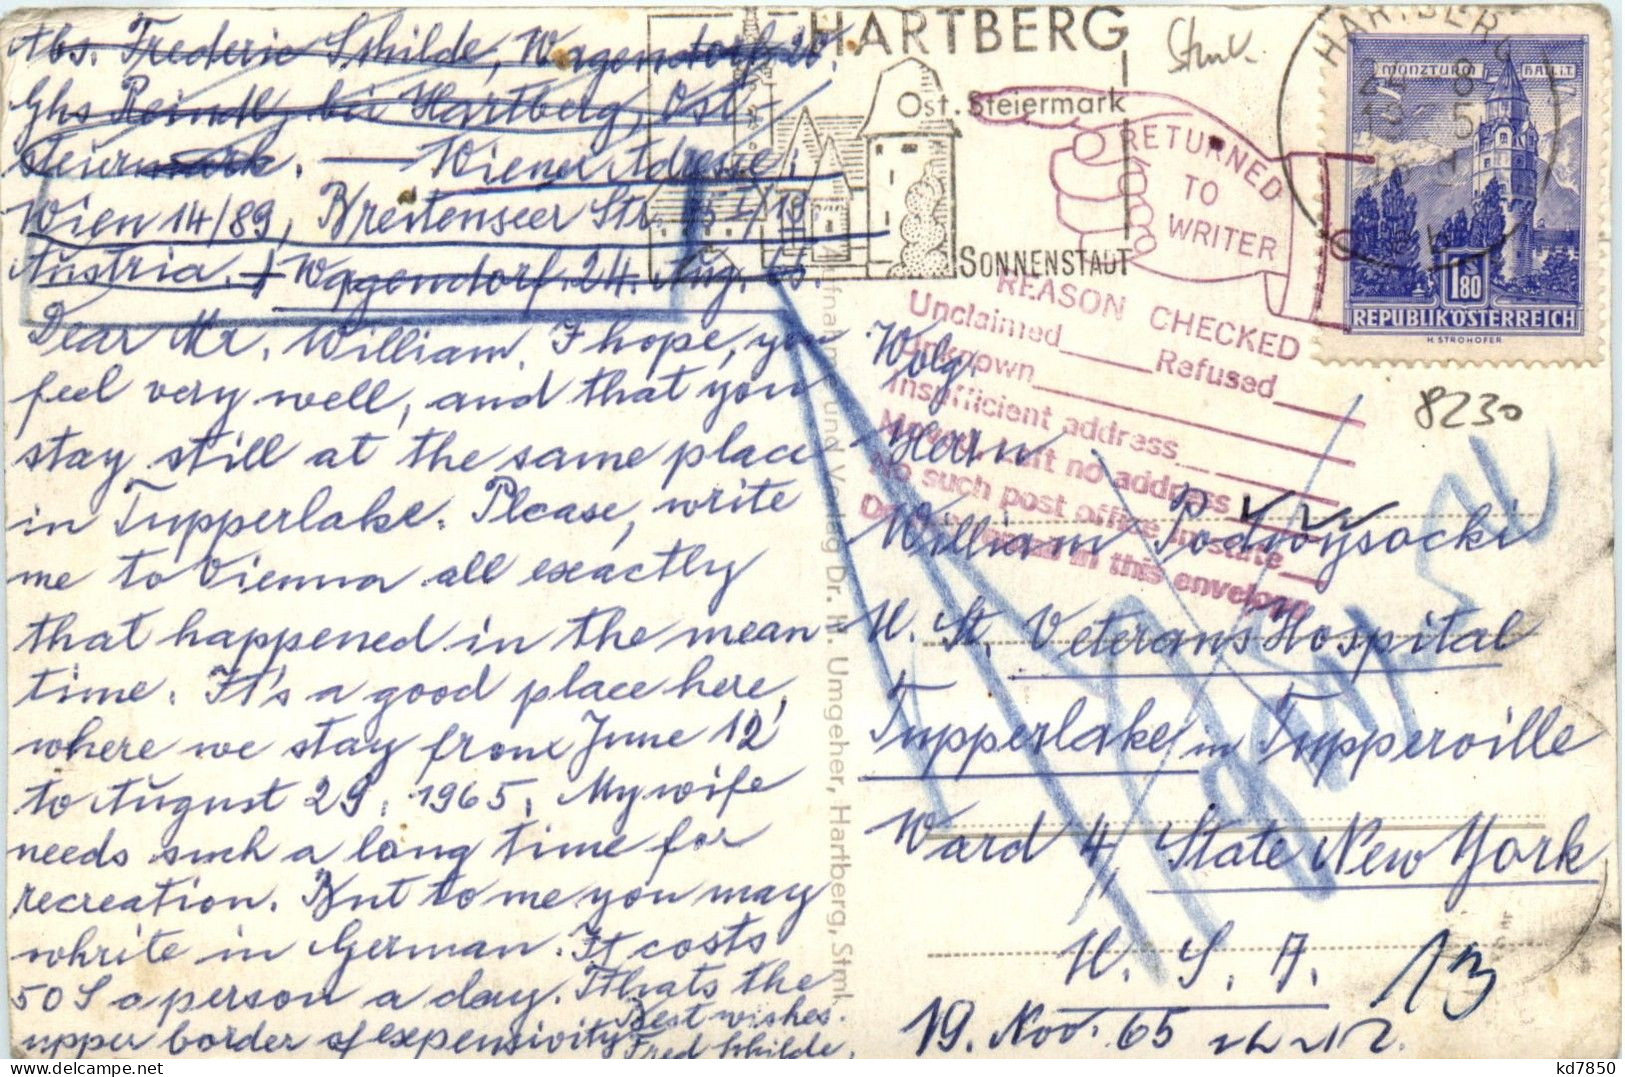 Abs. Frederic Schilde, Wagendorf 20.
Ghs Reindl, bei Hartberg, Ost-
steiermark. — Wiener Adresse:
Wien 14/89, Breitenseer Str.
Austria. Wagendorf. 24. Aug. 65.
Dear Mr. William. I hope, you
feel very well, and that you
stay still at the same place
in Tupperlake. Please, write
me to Vienna all exactly
that happened in the mean
time. It's a good place here,
where we stay from June 12
to August 29. 1965. My wife
needs such a long time for
recreation. But to me you may
whrite in German. It costs
50 S a person a day. Thats the
upper border of expensivity.
Best wishes.
Fred Schilde.
HARTBERG
Ost. Steiermark
SONNENSTADT
Stmk.
HARTBERG
MÜNZTURM HALL i.T.
1.80
REPUBLIK ÖSTERREICH
H. STROHOFER
8230
RETURNED
TO
WRITER
REASON CHECKED
Unclaimed Refused
Unknown
Insufficient address
Moved, Left no address
No such post office in state
Do not remail in this envelope
Wolg.
Herrn
William Podwysocki
U. St. Veterans Hospital
Tupperlake in Tupperville
Ward 4, State New York
U. S. A.
13
19. Nov. 65
Aufnahme und Verlag Dr. H. Umgeher, Hartberg, Stmk.
kd7850